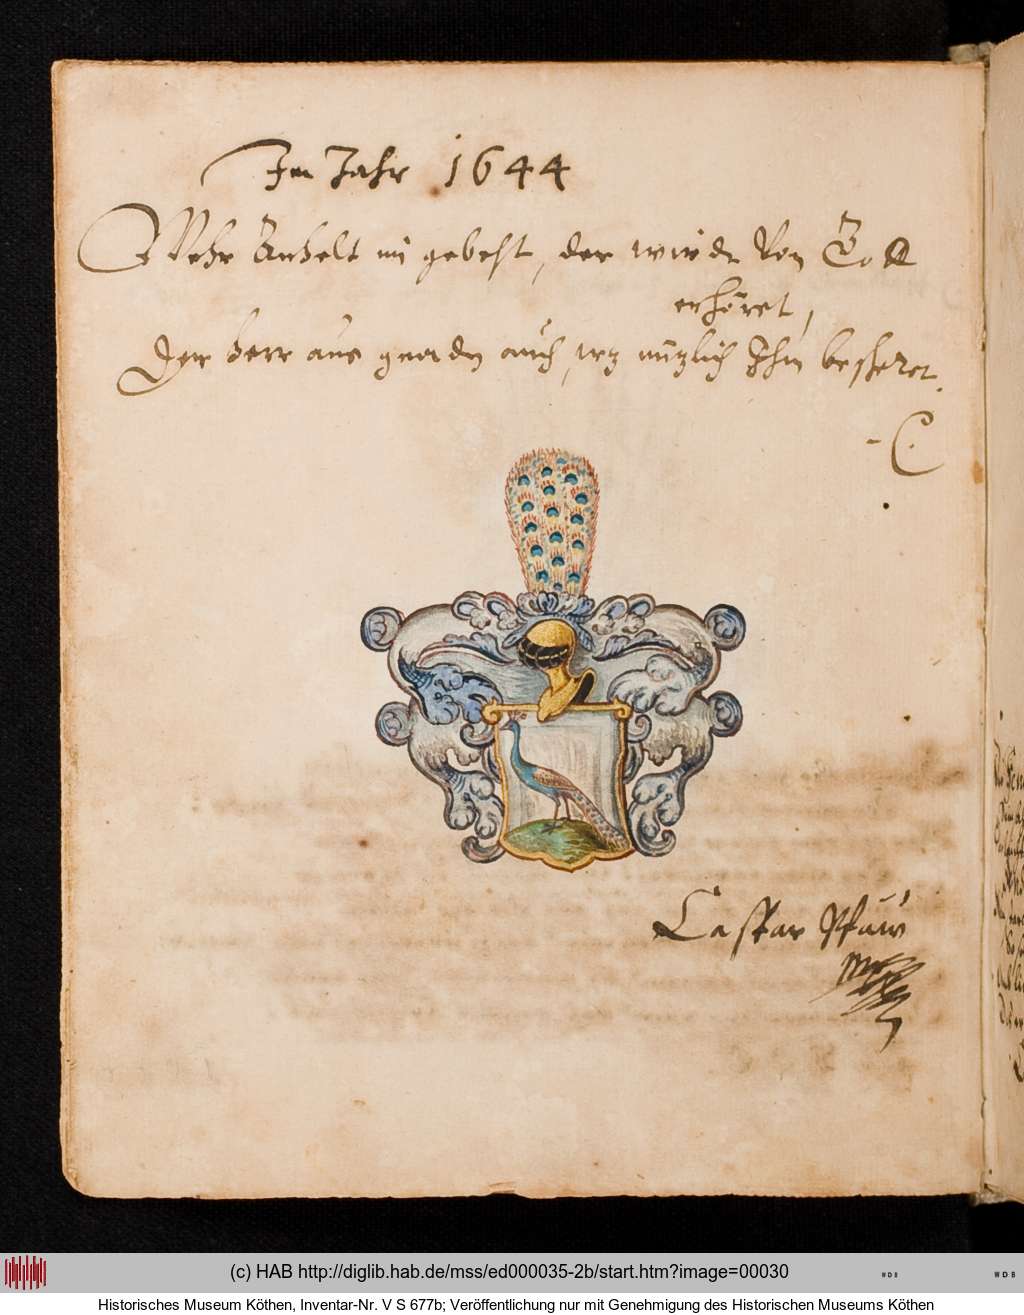 Im Jahr 1644
Wehr Anhelt im gebeht, der wirdt Von Gott
erhöret,
Der herr aus gnaden auch, wz nützlich Ihm bescheret.
C.
Caspar Pfaw
(c) HAB http://diglib.hab.de/mss/ed000035-2b/start.htm?image=00030
WDB
WDB
Historisches Museum Köthen, Inventar-Nr. V S 677b; Veröffentlichung nur mit Genehmigung des Historischen Museums Köthen